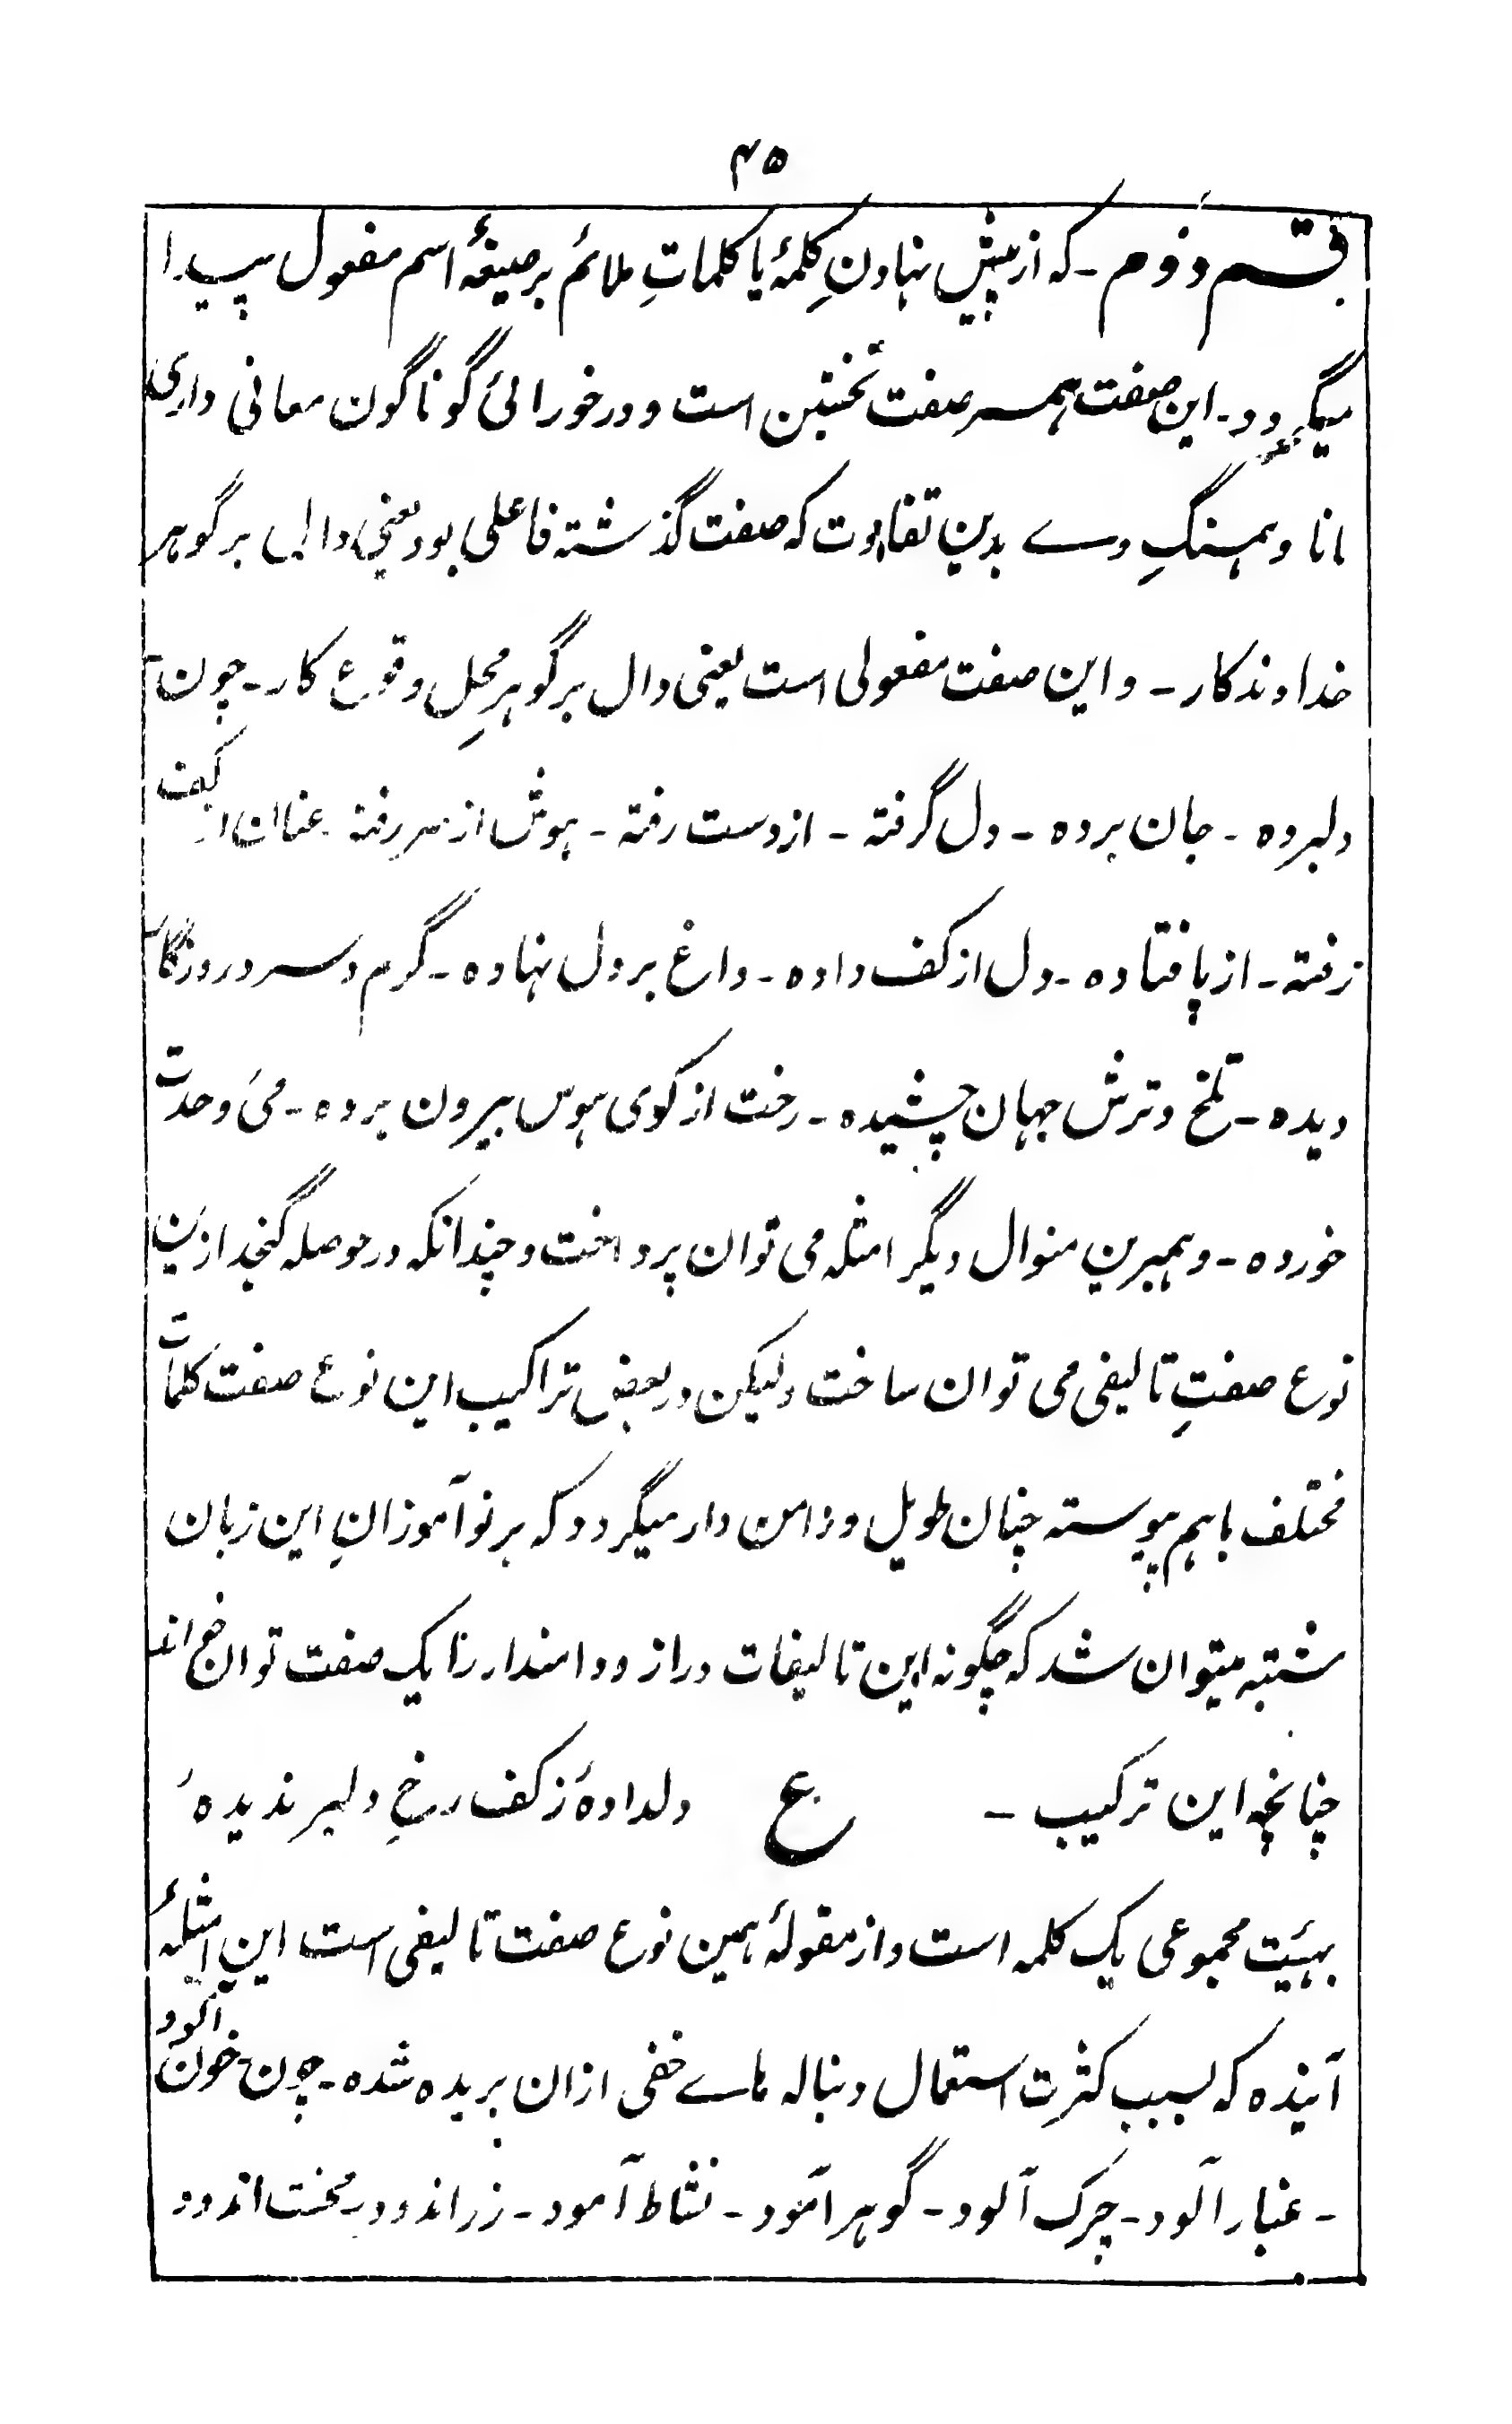 ۴۵
قسم دوم - که از پیش نهادنِ کلمۂ یا کلماتِ ملائم بر صیغۂ اسم مفعول پیدا
میگردد - این صفت همسر صفت نخستین است و در خورائی گوناگون معانی داری
مانا و همسنگِ وے بدین تفاوت که صفت گذشته فاعلی بود یعنی دال بر گوهر
خداوند کار - و این صفت مفعولی است یعنی دال بر گوهر محلِ وقوع کار - چون
دلبرده - جان برده - دل گرفته - از دست رفته - هوش از سر رفته - عنان از کف
رفته - از پا فتاده - دل از کف داده - داغ بر دل نهاده - گرم و سرد روزگار
دیده - تلخ و ترش جهان چشیده - رخت از کوی هوس بیرون برده - میٔ وحدت
خورده - و همبرین منوال دیگر امثله می توان پرداخت و چندانکه در حوصله گنجد ازین
نوع صفتِ تالیفی می توان ساخت ولیکن در بعض تراکیب این نوع صفت کلمات
مختلف باهم پیوسته چنان طویل و دامن دار میگردد که بر نوآموزانِ این زبان
مشتبه میتوان شد که چگونه این تالیفات دراز و دامندار را یک صفت توان خواند
چنانچه این ترکیب - ع دلدادۂ ز کف رخِ دلبر ندیدۂ
بهیئت مجموعی یک کلمه است و از مقولۂ همین نوع صفت تالیفی است این امثلۂ
آینده که بسبب کثرت استعمال دنباله هاے خفی ازان بریده شده - چون خون آلود
- غبار آلود - چرک آلود - گوهر آمود - نشاط آمود - زر اندود - محنت اندود